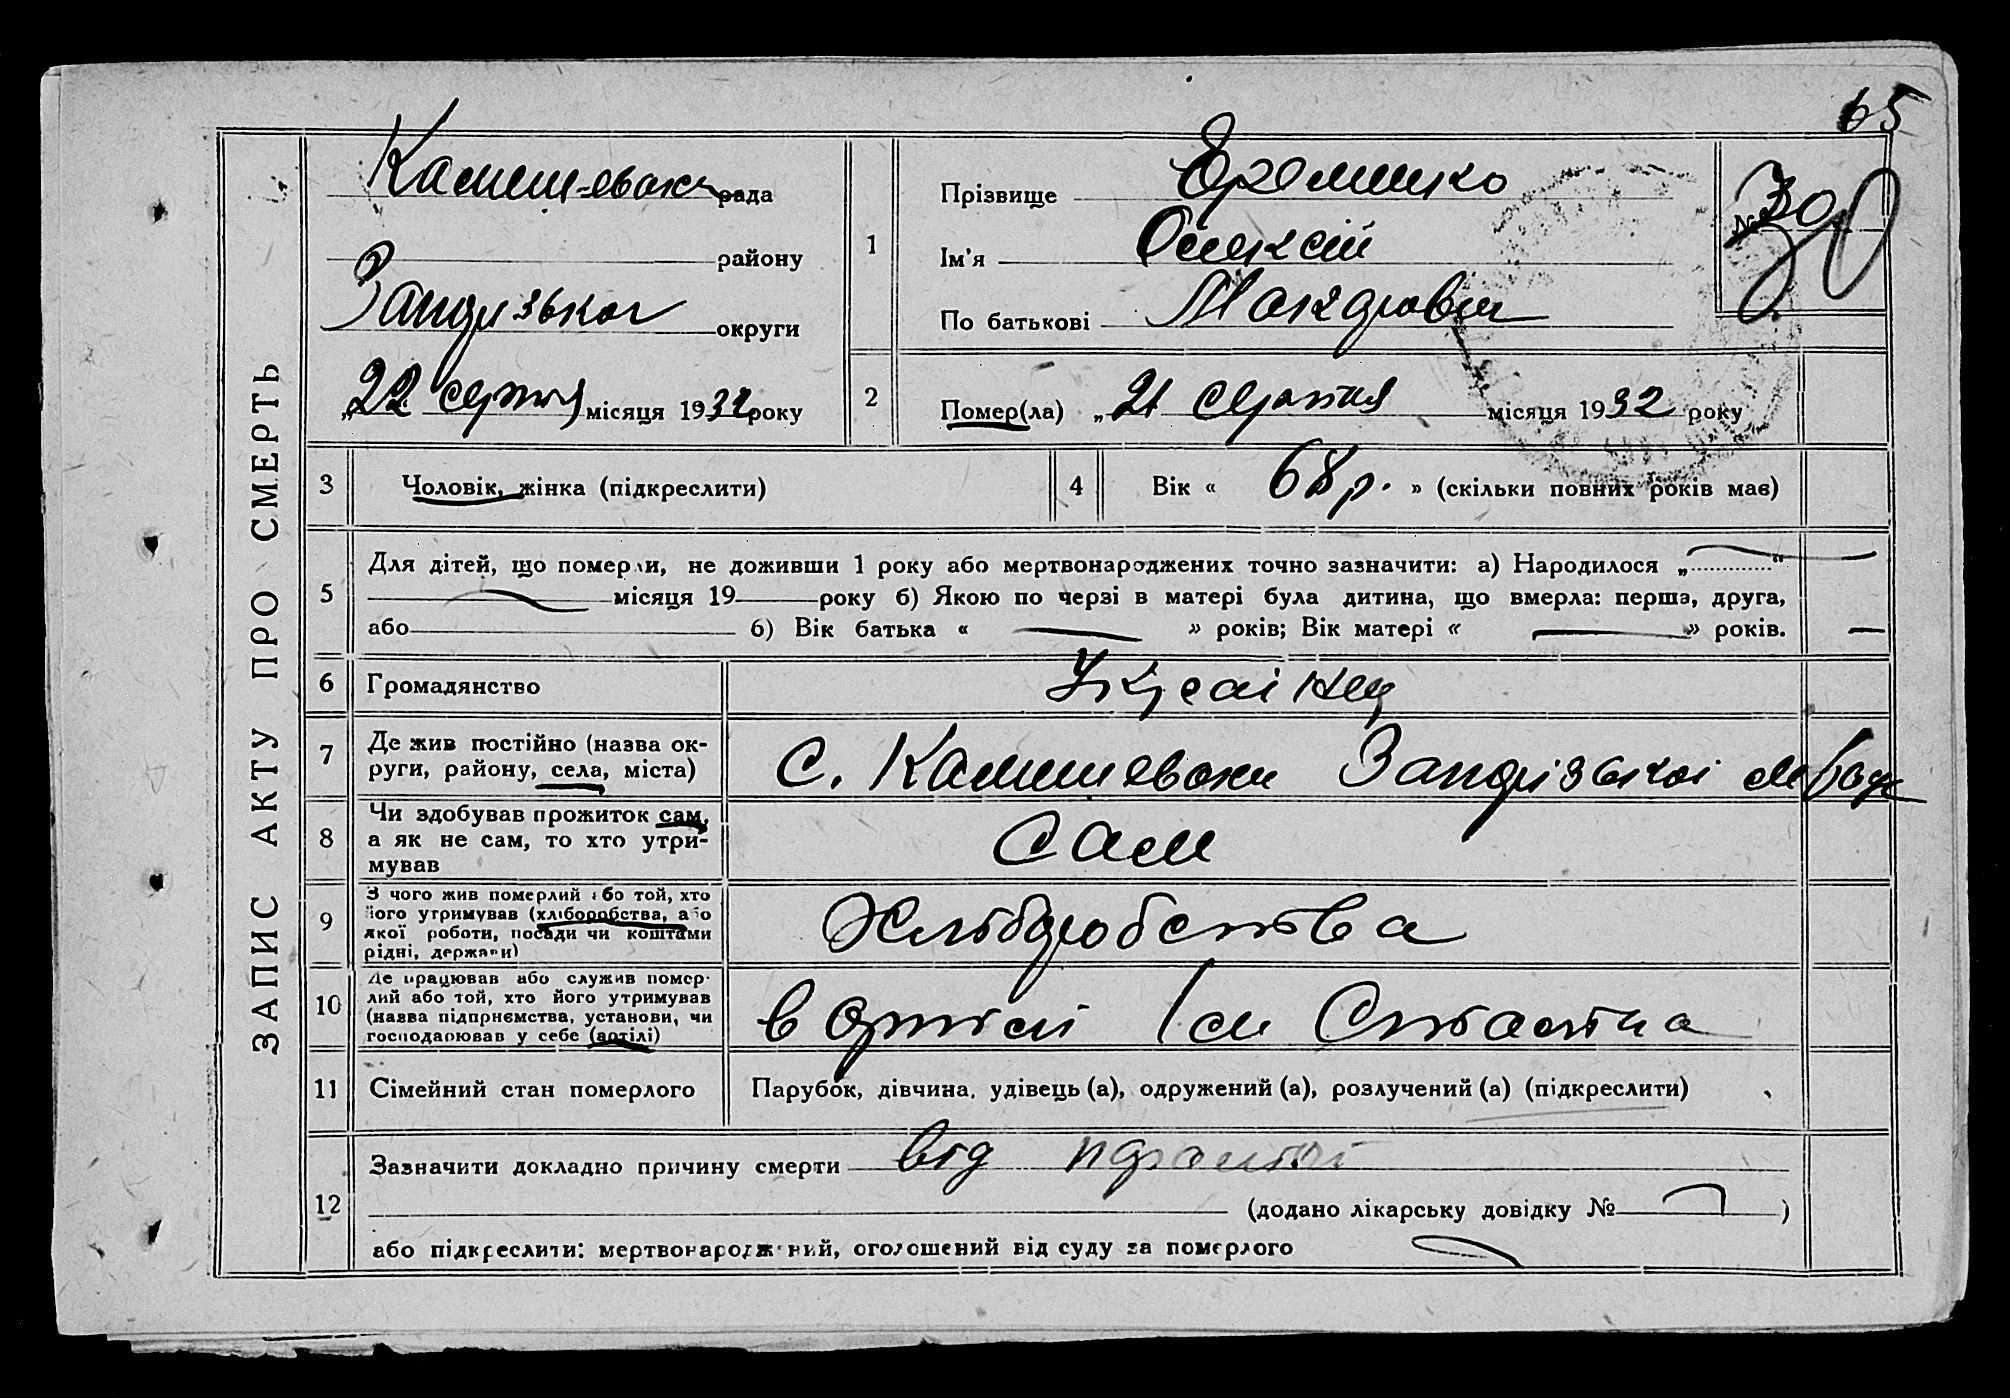 65
ЗАПИС АКТУ ПРО СМЕРТЬ
Камишеваська рада
району
округи
„22 серпня місяця 1932 року
1
Прізвище
Ім'я Олексій
По батькові
№ 30
30
2
Помер(ла) „21 серпня місяця 1932 року
3
Чоловік, жінка (підкреслити)
4
Вік « 68 р. » (скільки повних років має)
5
Для дітей, що померли, не доживши 1 року або мертвонароджених точно зазначити: а) Народилося „ “
місяця 19 року б) Якою по черзі в матері була дитина, що вмерла: перша, друга,
або б) Вік батька « » років; Вік матері « » років.
6
Громадянство
Українец
7
Де жив постійно (назва ок-
руги, району, села, міста)
с. Камишеваха
8
Чи здобував прожиток сам,
а як не сам, то хто утри-
мував
Сам
9
З чого жив померлий або той, хто
його утримував (хліборобства, або
якої роботи, посади чи коштами
рідні, держави)
Хліборобства
10
Де працював або служив помер-
лий або той, хто його утримував
(назва підприємства, установи, чи
господарював у себе (артілі)
в артілі Ім Сталіна
11
Сімейний стан померлого
Парубок, дівчина, удівець (а), одружений (а), розлучений (а) (підкреслити)
12
Зазначити докладно причину смерти від
(додано лікарську довідку № )
або підкреслити: мертвонароджений, оголошений від суду за померлого